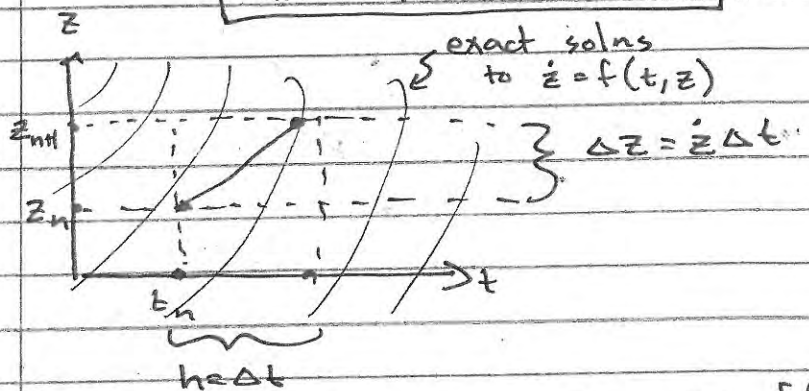 z
exact solns
to ż = f(t, z)
z_{n+1}
Δz = ż Δt
z_n
t
t_n
h = Δt